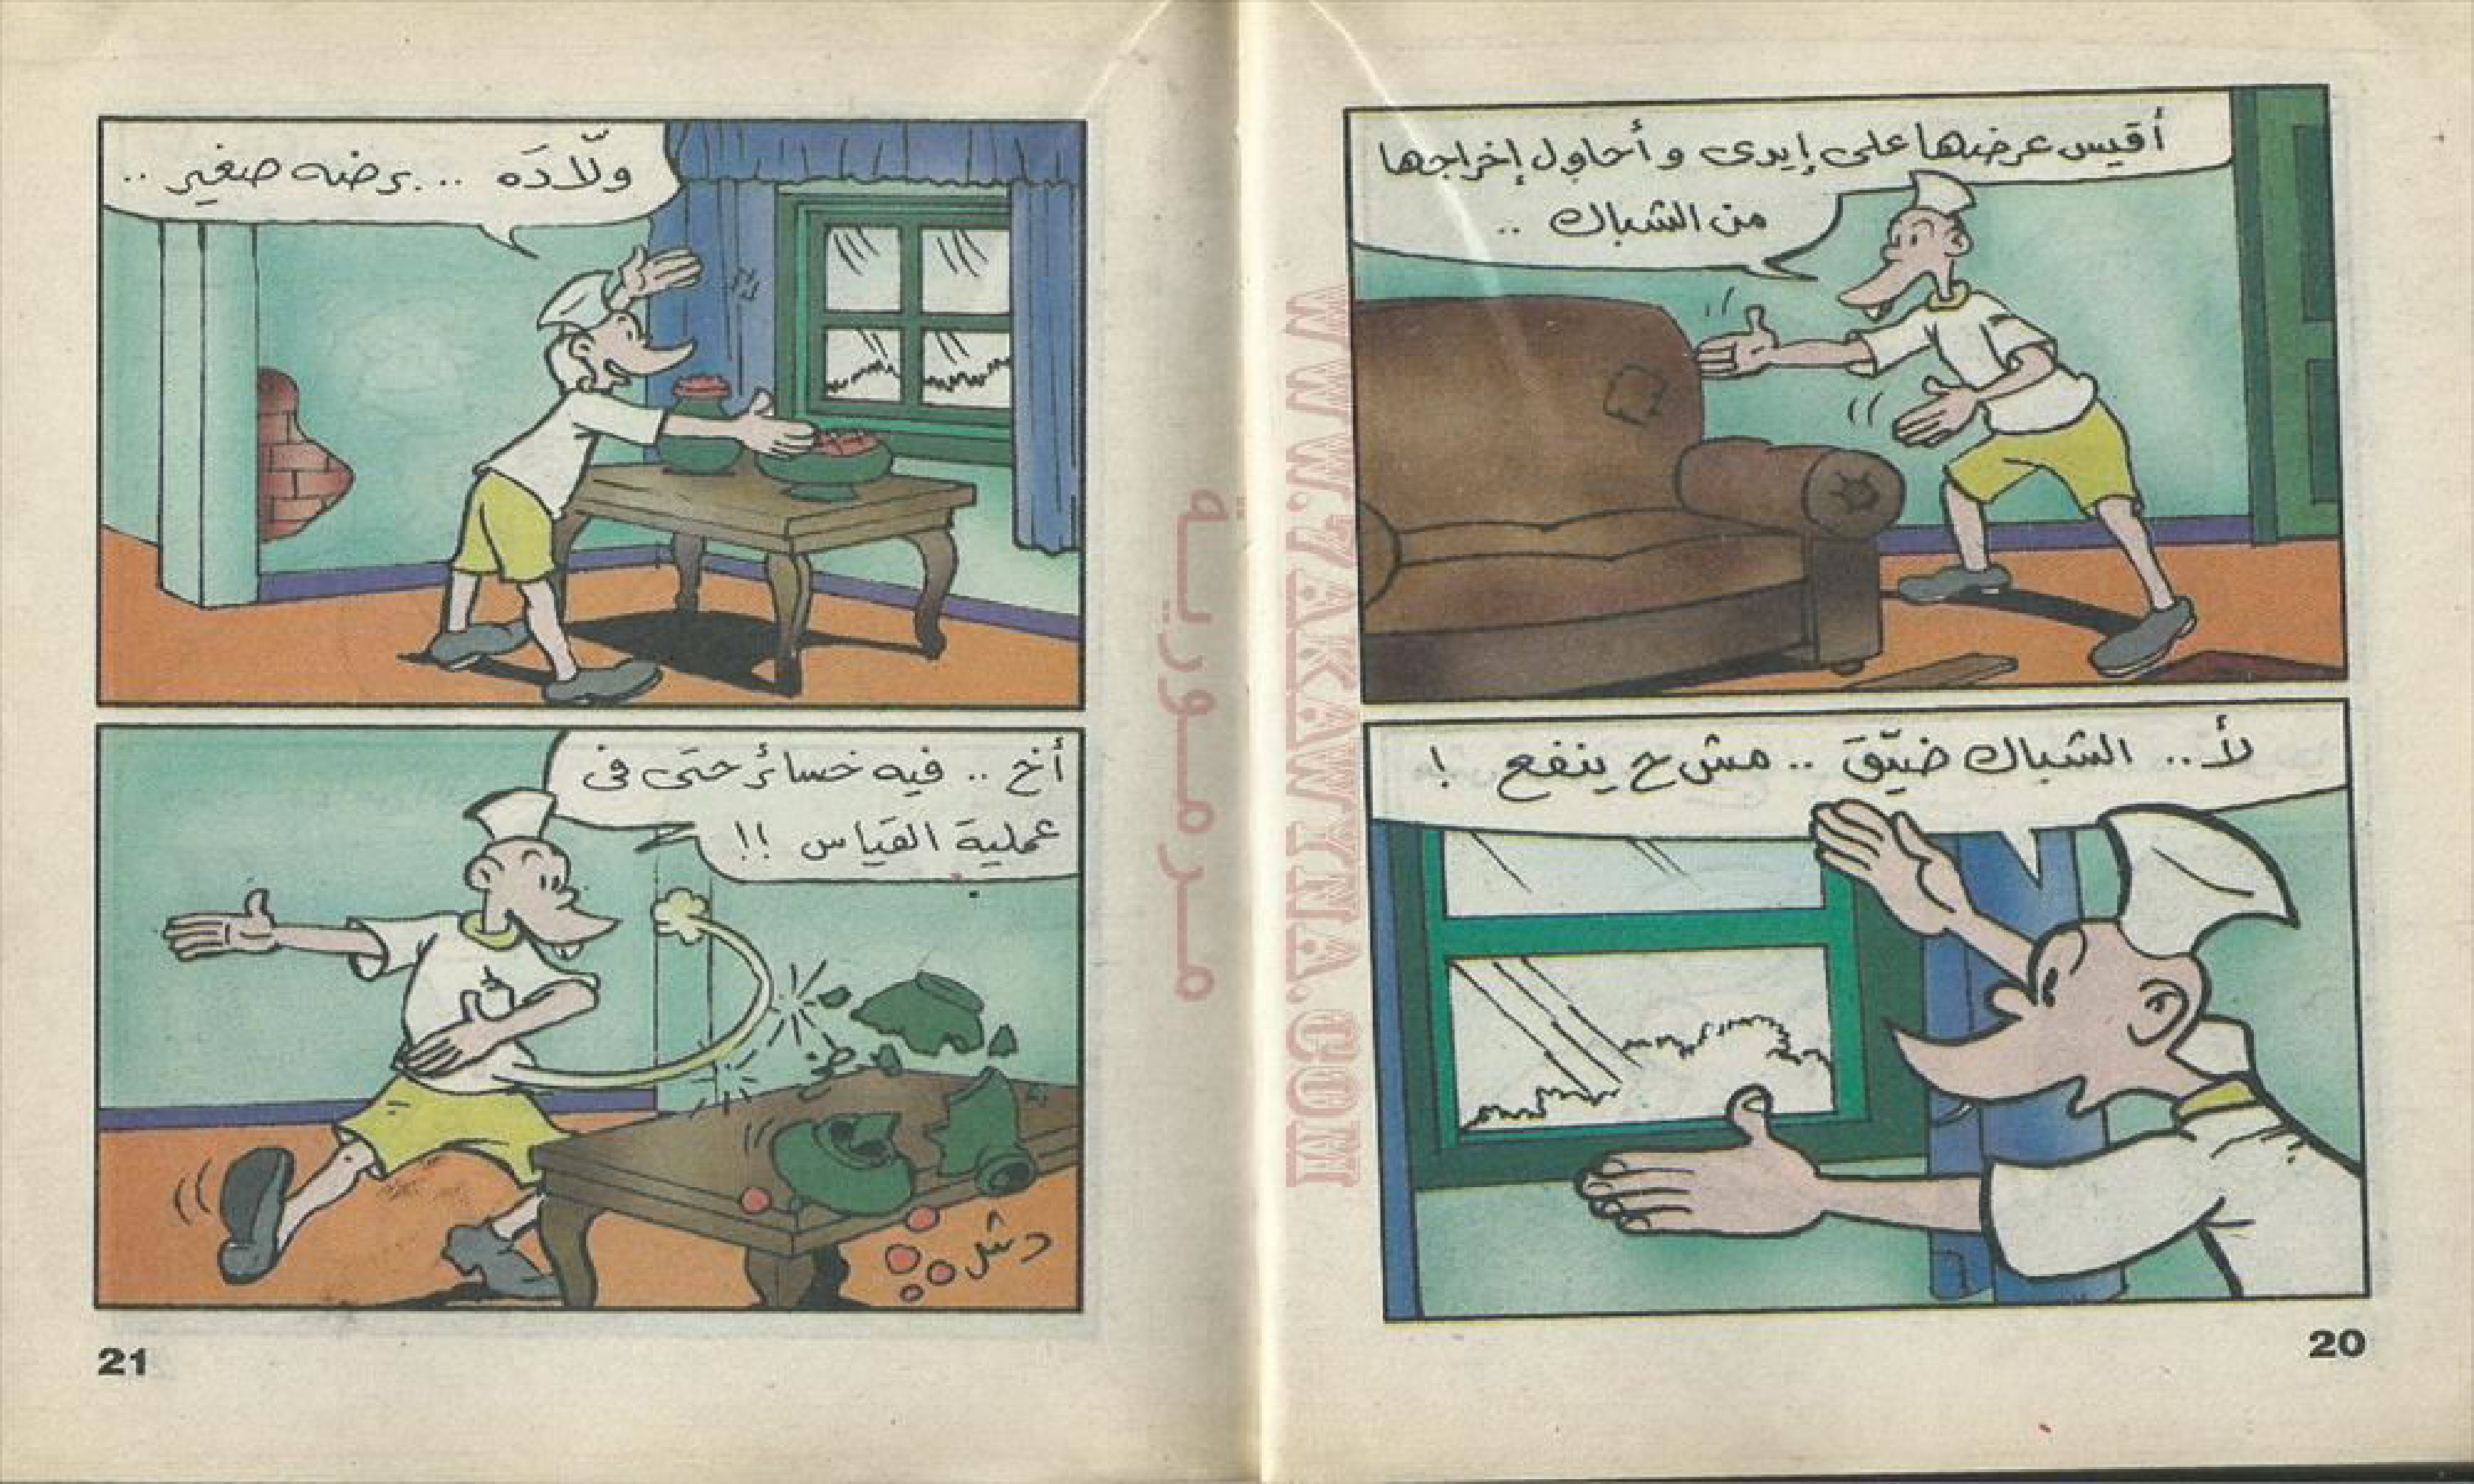 أقيس عرضها على إيدى و أحاول إخراجها
من الشباك ..
لأ .. الشباك ضيّق .. مش ح ينفع !
20
ولّا دَه .. برضه صغير ..
أخ .. فيه خسائر حتى فى
عملية القياس !!
دش
21
مرمورية
WWW.VAKAWYNA.COM